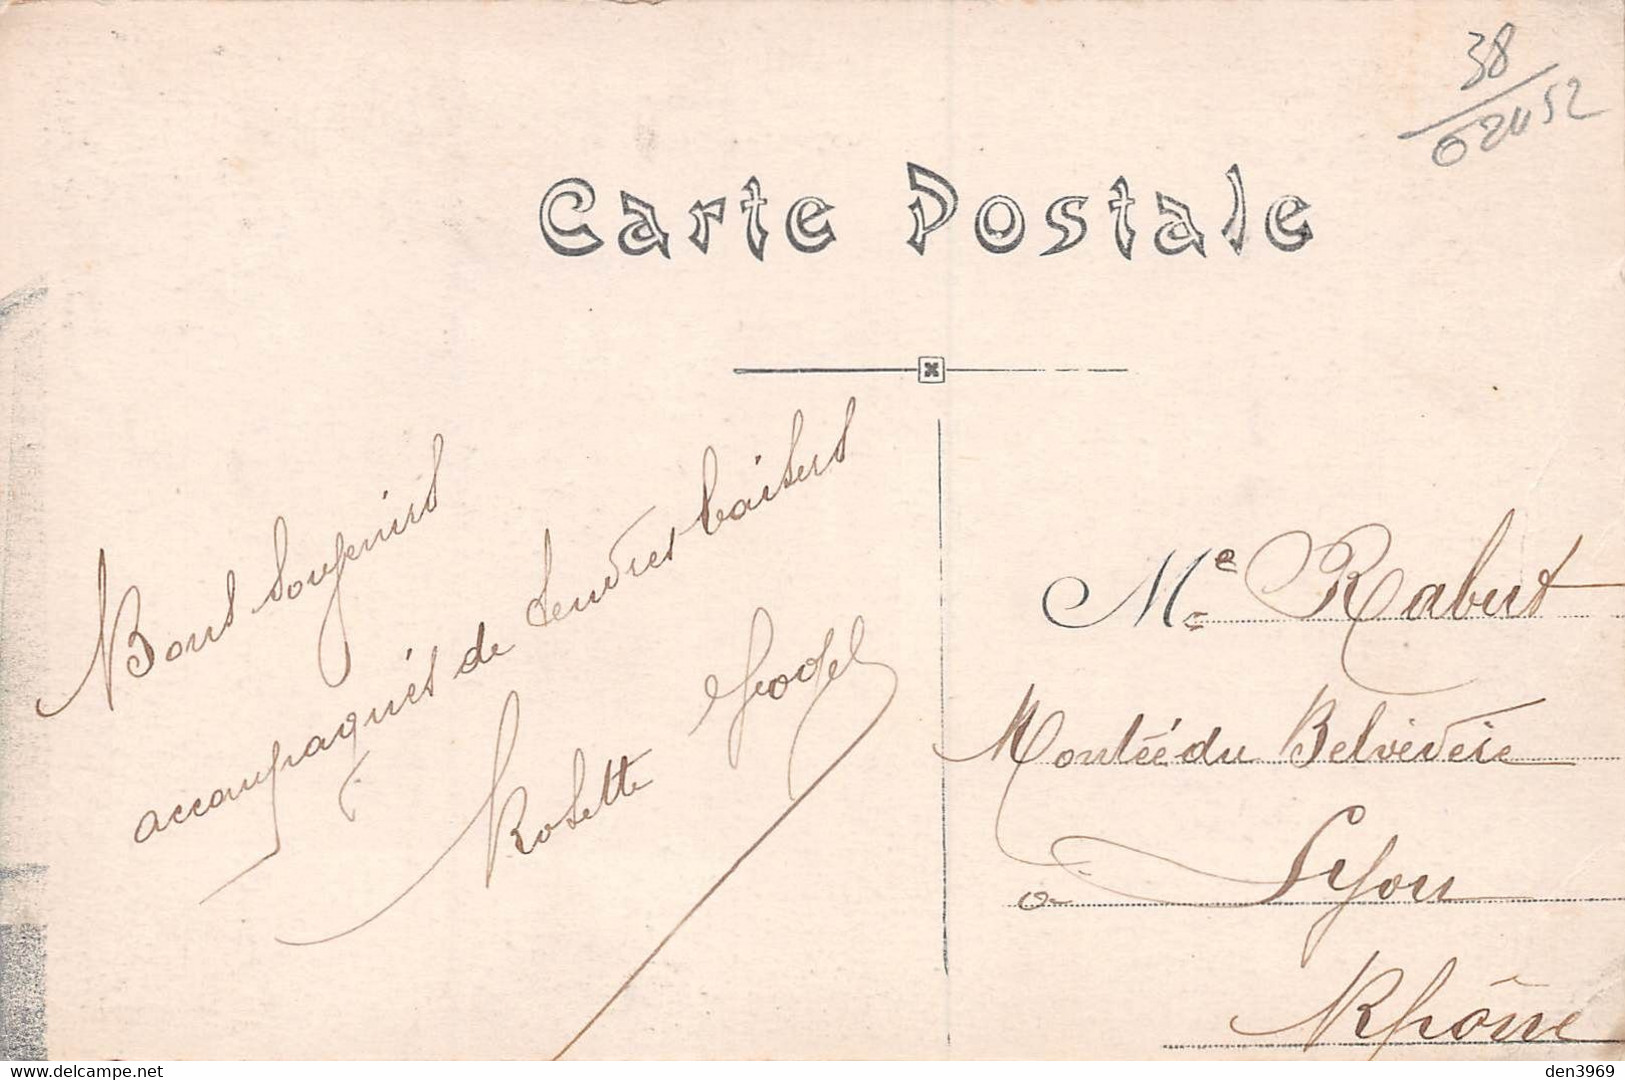 38
02452
Carte Postale
Bons souvenirs
accompagnés de tendres baisers
Rosette
Me Rabut
Montée du Belvédère
a Lyon
Rhône
delcampe.net
den3969